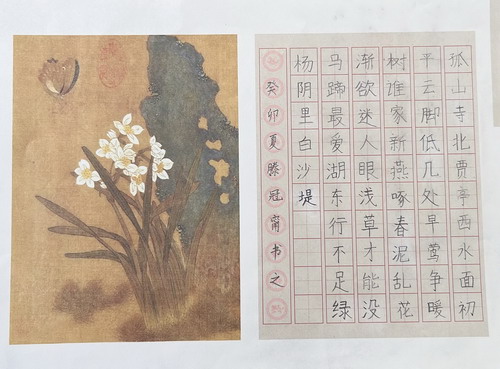 孤山寺北贾亭西水面初
平云脚低几处早莺争暖
树谁家新燕啄春泥乱花
渐欲迷人眼浅草才能没
马蹄最爱湖东行不足绿
杨阴里白沙堤
癸卯夏滕冠甯书之